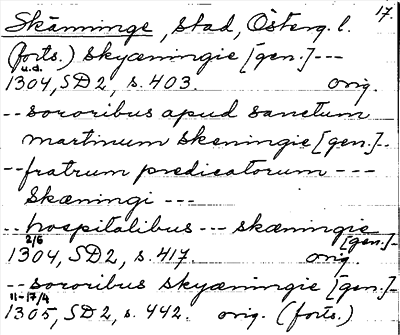 17.
Skänninge, stad, Österg. l.
(forts.) skyæningie [gen.] ---
u.d.
1304, SD 2, s. 403. orig.
-- sororibus apud sanctum
martinum skeningie [gen.]--
-- fratrum predicatorum ---
Skæningi ---
-- hospitalibus --- skæningie
[gen.]-
2/6
1304, SD 2, s. 417. orig.
-- sororibus skyæningie [gen.]-
11-17/4
1305, SD 2, s. 442. orig. (forts.)